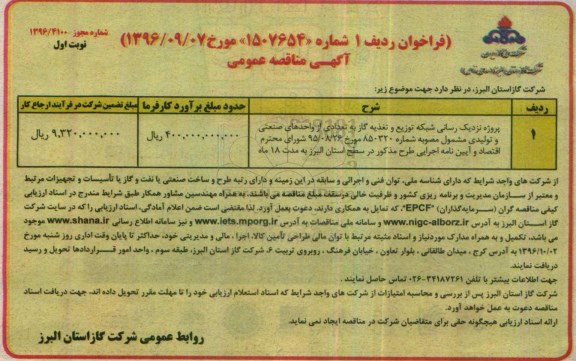 شماره مجوز ۱۳۹۶/۴۱۰۰
نوبت اول
(فراخوان ردیف ۱ شماره «۱۵۰۷۶۵۴» مورخ ۱۳۹۶/۰۹/۰۷)
آگهی مناقصه عمومی
شرکت گاز استان البرز، در نظر دارد جهت موضوع زیر:
ردیف
شرح
حدود مبلغ برآورد کارفرما
مبلغ تضمین شرکت در فرآیند ارجاع کار
۱
پروژه نزدیک رسانی شبکه توزیع و تغذیه گاز به تعدادی از واحدهای صنعتی
و تولیدی مشمول مصوبه شماره ۸۵۰۳۲۰ مورخ ۹۵/۰۸/۲۶ شورای محترم
اقتصاد و آیین نامه اجرایی طرح مذکور در سطح استان البرز به مدت ۱۸ ماه
۴۰۰,۰۰۰,۰۰۰,۰۰۰ ریال
۹,۳۲۰,۰۰۰,۰۰۰ ریال
از شرکت های واجد شرایط که دارای شناسه ملی، توان فنی و اجرائی و سابقه در این زمینه و دارای رتبه طرح و ساخت صنعتی یا نفت و گاز یا تأسیسات و تجهیزات مرتبط
و معتبر از سازمان مدیریت و برنامه ریزی کشور و ظرفیت خالی در سقف مبلغ مناقصه می باشند، به همراه مهندسین مشاور همکار طبق شرایط مندرج در اسناد ارزیابی
کیفی مناقصه گران (سرمایه گذاران) "EPCF"، که تمایل به همکاری دارند، دعوت بعمل آورد. لذا مقتضی است ضمن اعلام آمادگی، اسناد ارزیابی را که در سایت شرکت
گاز استان البرز به آدرس www.nigc-alborz.ir و سامانه ملی مناقصات به آدرس www.iets.mporg.ir و نیز سامانه اطلاع رسانی www.shana.ir موجود
می باشد، تکمیل و به همراه مدارک مورد نیاز و اسناد مثبته مرتبط با توان مالی طراحی تأمین کالا، اجرا، مالی و مدیریتی خود، حداکثر تا پایان وقت اداری روز شنبه مورخ
۱۳۹۶/۱۰/۰۲ به آدرس کرج، میدان طالقانی، بلوار تعاون، خیابان فرهنگ، روبروی تربیت ۶، شرکت گاز استان البرز، طبقه سوم، واحد امور قراردادها تحویل و رسید
دریافت نمایند.
جهت اطلاعات بیشتر با تلفن ۳۴۱۸۷۲۶۱-۰۲۶ تماس حاصل نمایند.
شرکت گاز استان البرز پس از بررسی و محاسبه امتیازات از شرکت های واجد شرایط که اسناد استعلام ارزیابی خود را تا مهلت مقرر تحویل داده اند، جهت دریافت اسناد
مناقصه دعوت به عمل خواهد آورد.
ارائه اسناد ارزیابی هیچگونه حقی برای متقاضیان شرکت در مناقصه ایجاد نمی نماید.
روابط عمومی شرکت گاز استان البرز